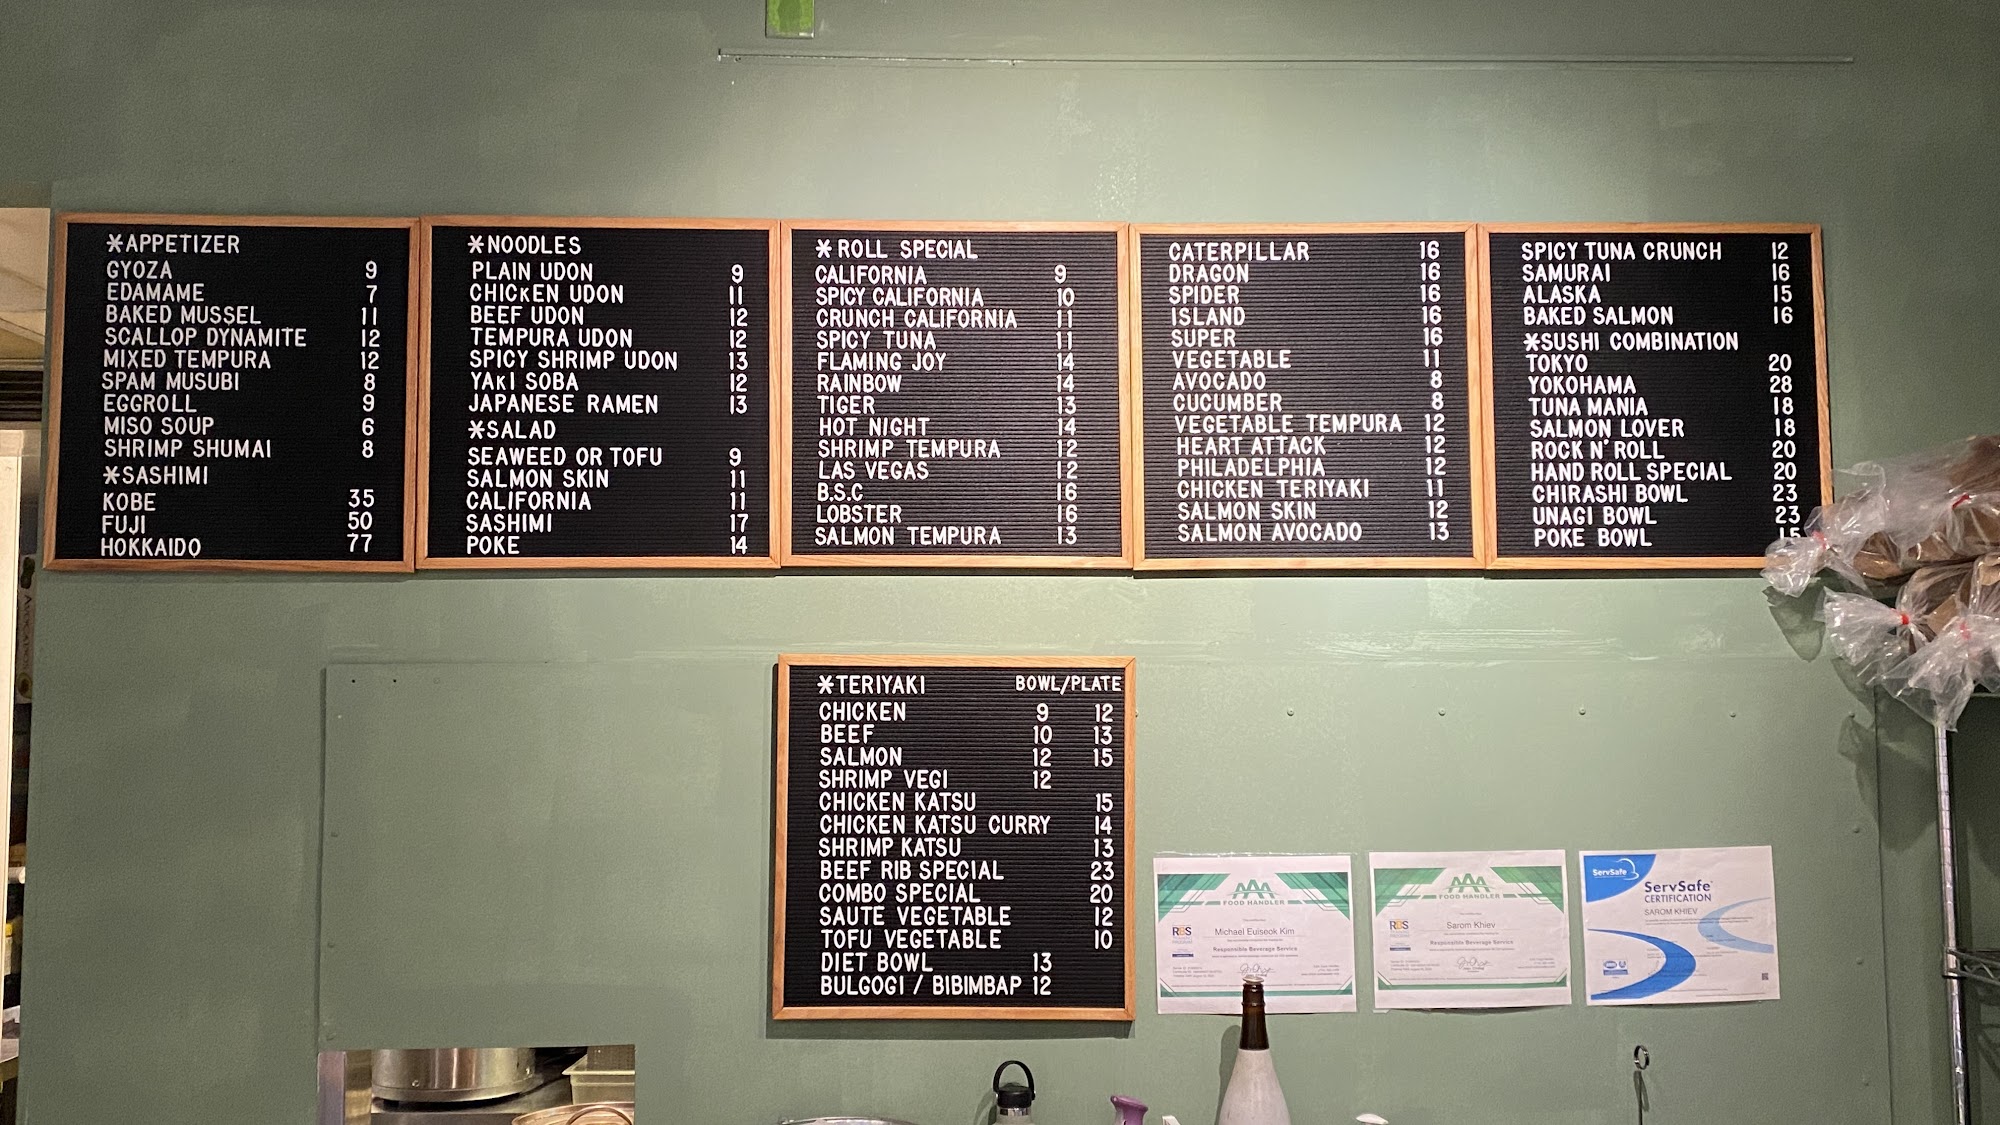 *APPETIZER
GYOZA 9
EDAMAME 7
BAKED MUSSEL 11
SCALLOP DYNAMITE 12
MIXED TEMPURA 12
SPAM MUSUBI 8
EGGROLL 9
MISO SOUP 6
SHRIMP SHUMAI 8
*SASHIMI
KOBE 35
FUJI 50
HOKKAIDO 77
*NOODLES
PLAIN UDON 9
CHICKEN UDON 11
BEEF UDON 12
TEMPURA UDON 12
SPICY SHRIMP UDON 13
YAKI SOBA 12
JAPANESE RAMEN 13
*SALAD
SEAWEED OR TOFU 9
SALMON SKIN 11
CALIFORNIA 11
SASHIMI 17
POKE 14
* ROLL SPECIAL
CALIFORNIA 9
SPICY CALIFORNIA 10
CRUNCH CALIFORNIA 11
SPICY TUNA 11
FLAMING JOY 14
RAINBOW 14
TIGER 13
HOT NIGHT 14
SHRIMP TEMPURA 12
LAS VEGAS 12
B.S.C 16
LOBSTER 16
SALMON TEMPURA 13
CATERPILLAR 16
DRAGON 16
SPIDER 16
ISLAND 16
SUPER 16
VEGETABLE 11
AVOCADO 8
CUCUMBER 8
VEGETABLE TEMPURA 12
HEART ATTACK 12
PHILADELPHIA 12
CHICKEN TERIYAKI 11
SALMON SKIN 12
SALMON AVOCADO 13
SPICY TUNA CRUNCH 12
SAMURAI 16
ALASKA 15
BAKED SALMON 16
*SUSHI COMBINATION
TOKYO 20
YOKOHAMA 28
TUNA MANIA 18
SALMON LOVER 18
ROCK N' ROLL 20
HAND ROLL SPECIAL 20
CHIRASHI BOWL 23
UNAGI BOWL 23
POKE BOWL 15
*TERIYAKI BOWL/PLATE
CHICKEN 9 12
BEEF 10 13
SALMON 12 15
SHRIMP VEGI 12
CHICKEN KATSU 15
CHICKEN KATSU CURRY 14
SHRIMP KATSU 13
BEEF RIB SPECIAL 23
COMBO SPECIAL 20
SAUTE VEGETABLE 12
TOFU VEGETABLE 10
DIET BOWL 13
BULGOGI / BIBIMBAP 12
AAA
FOOD HANDLER
RBS
Michael Euiseok Kim
Responsible Beverage Service
AAA
FOOD HANDLER
RBS
Sarom Khiev
Responsible Beverage Service
ServSafe
ServSafe
CERTIFICATION
SAROM KHIEV